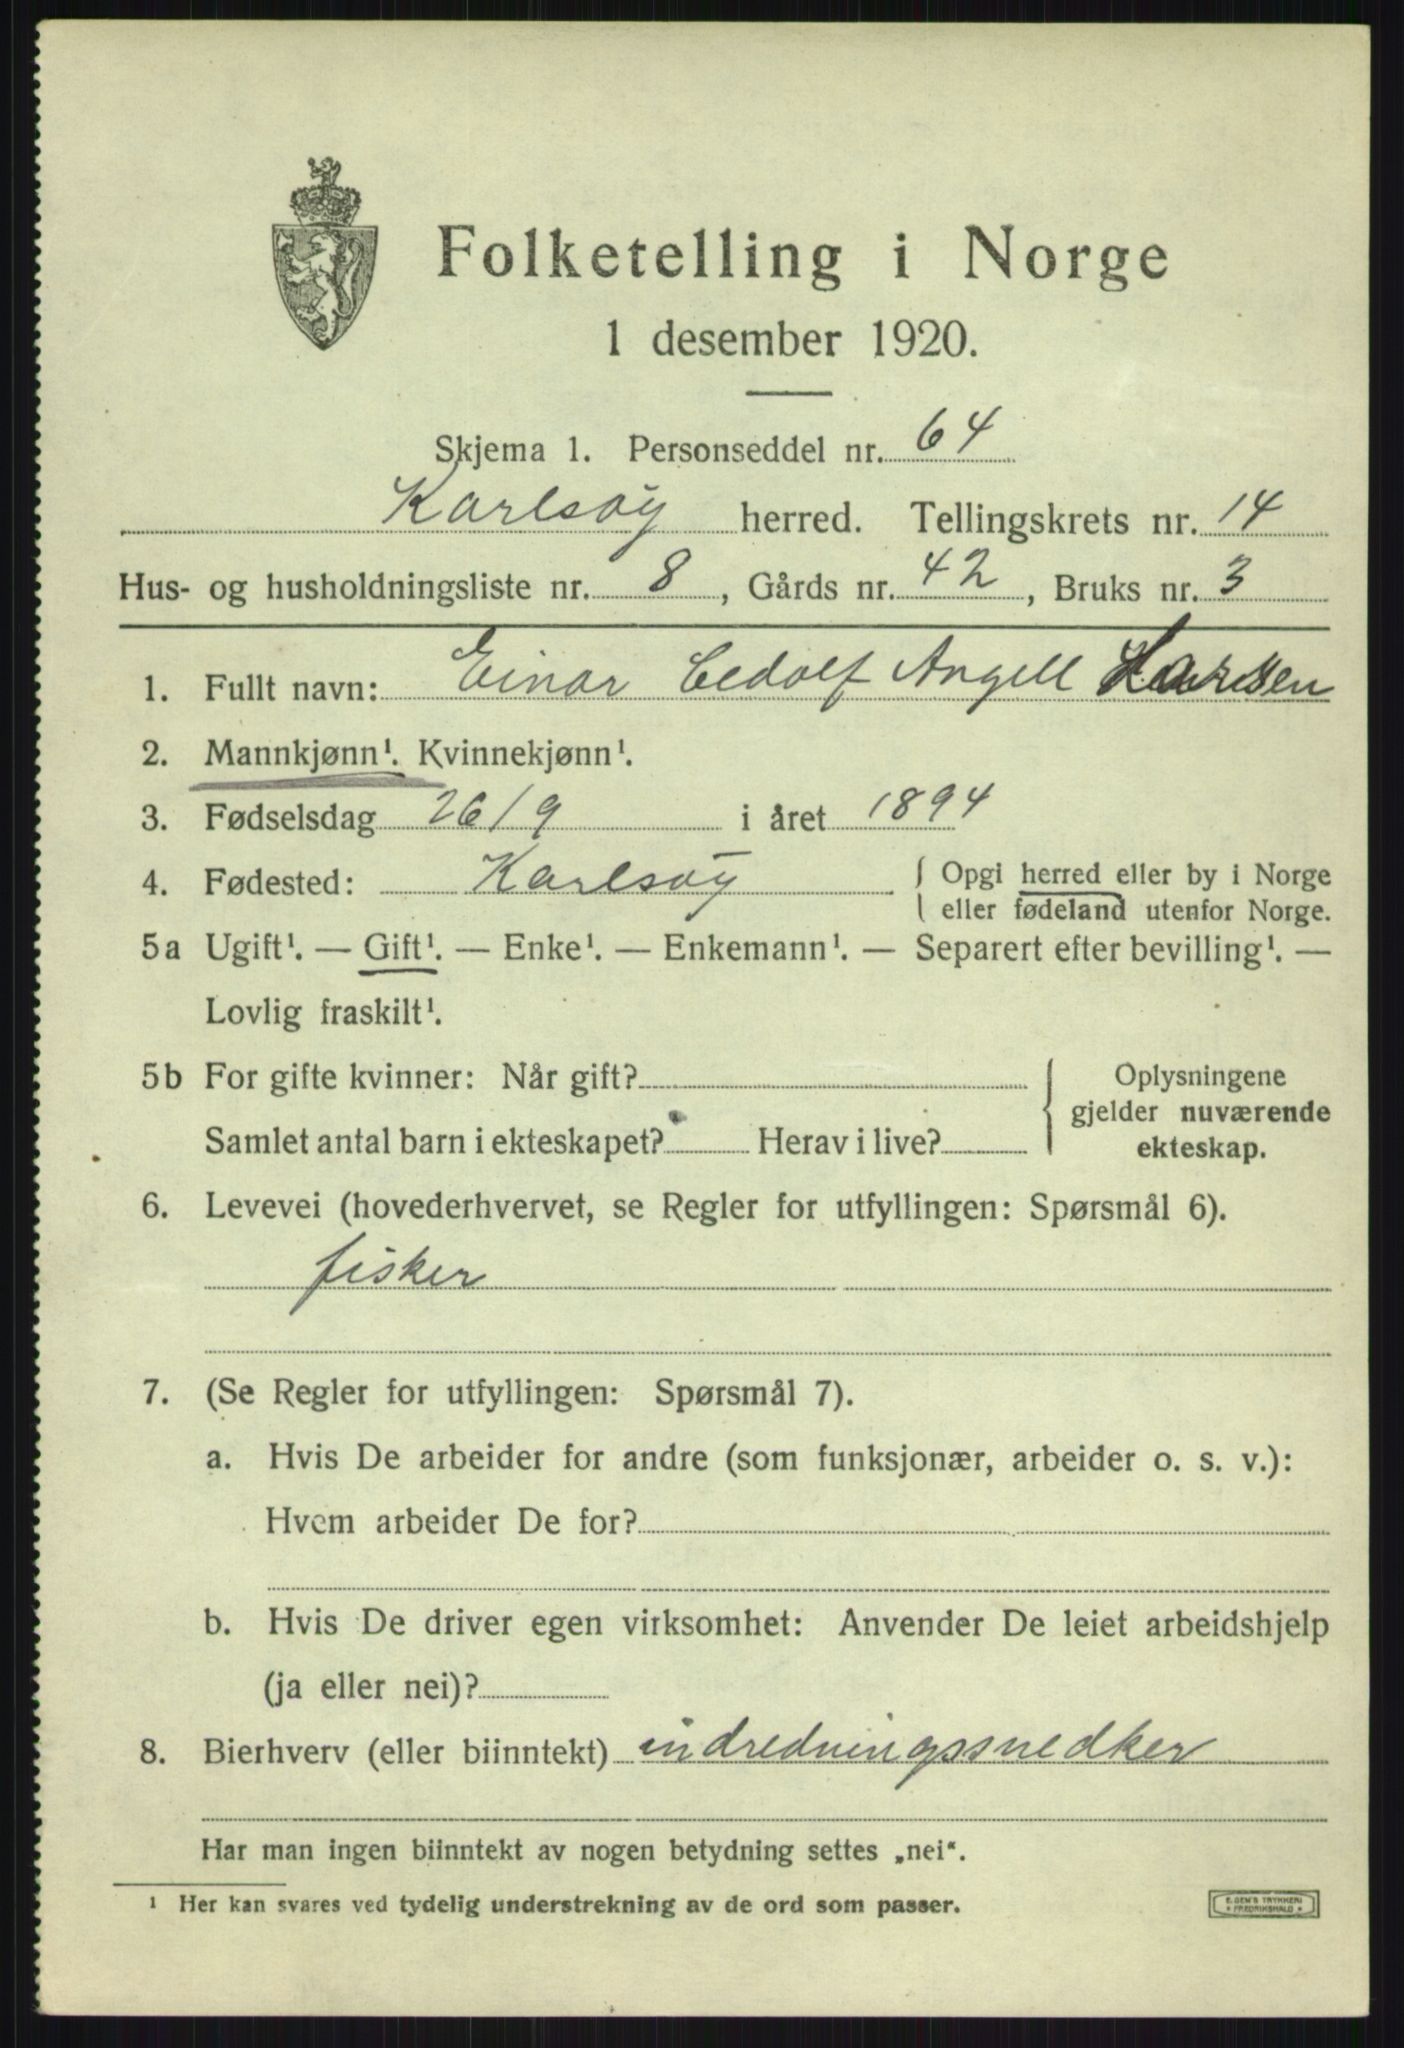 Folketelling i Norge
1 desember 1920.
Skjema 1. Personseddel nr. 64
Karlsöy herred. Tellingskrets nr. 14
Hus- og husholdningsliste nr. 8, Gårds nr. 42, Bruks nr. 3
1. Fullt navn: Einar Angell
2. Mannkjønn¹. Kvinnekjønn¹.
3. Fødselsdag 26/9 i året 1894
4. Fødested: Karlsöy { Opgi herred eller by i Norge
eller fødeland utenfor Norge.
5a Ugift¹. — Gift¹. — Enke¹. — Enkemann¹. — Separert efter bevilling¹. —
Lovlig fraskilt¹.
5b For gifte kvinner: Når gift? { Oplysningene
gjelder nuværende
Samlet antal barn i ekteskapet? Herav i live? ekteskap.
6. Levevei (hovederhvervet, se Regler for utfyllingen: Spørsmål 6).
fisker
7. (Se Regler for utfyllingen: Spørsmål 7).
a. Hvis De arbeider for andre (som funksjonær, arbeider o. s. v.):
Hvem arbeider De for?
b. Hvis De driver egen virksomhet: Anvender De leiet arbeidshjelp
(ja eller nei)?
8. Bierhverv (eller biinntekt) indredningssnedker
Har man ingen biinntekt av nogen betydning settes „nei“.
¹ Her kan svares ved tydelig understrekning av de ord som passer.
E. SEM'S TRYKKERI
* FREDRIKSHALD *